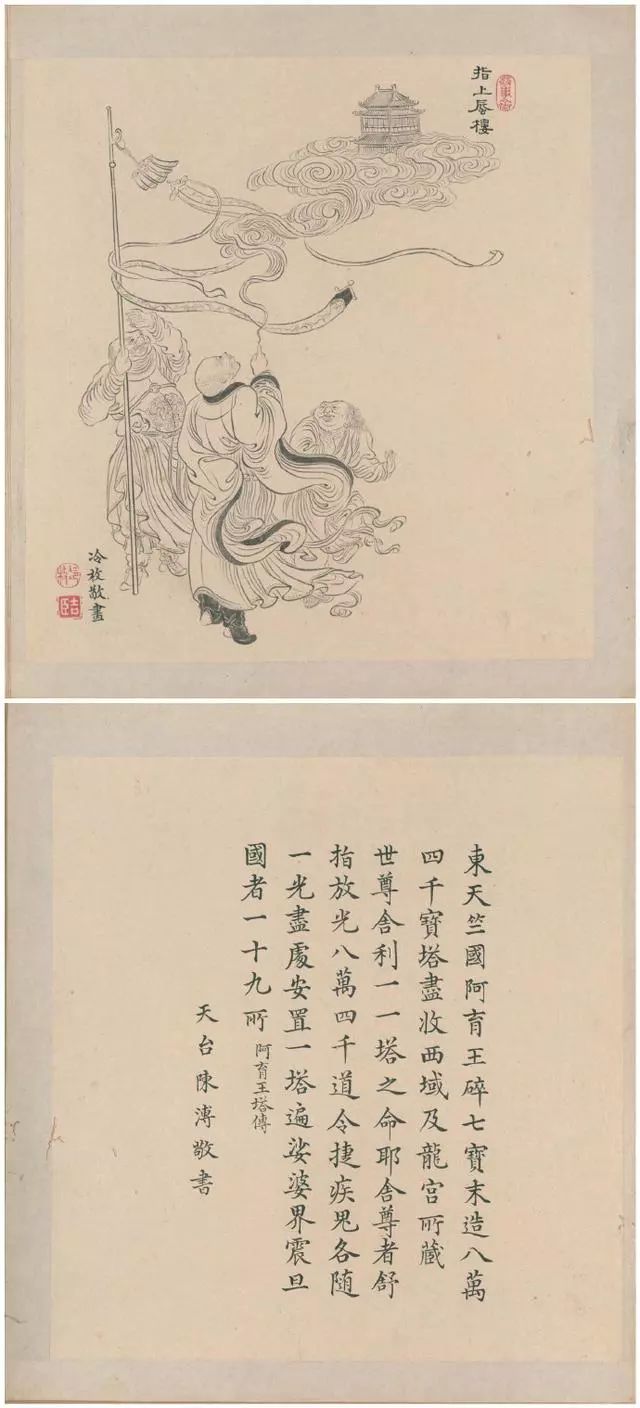 指上蜃樓
冷枚敬畫
吉臣
東天竺國阿育王碎七寶末造八萬
四千寶塔盡收西域及龍宮所藏
世尊舍利一一塔之命耶舍尊者舒
指放光八萬四千道令捷疾鬼各隨
一光盡處安置一塔遍娑婆界震旦
國者一十九所 阿育王塔傳
天台陳溥敬書